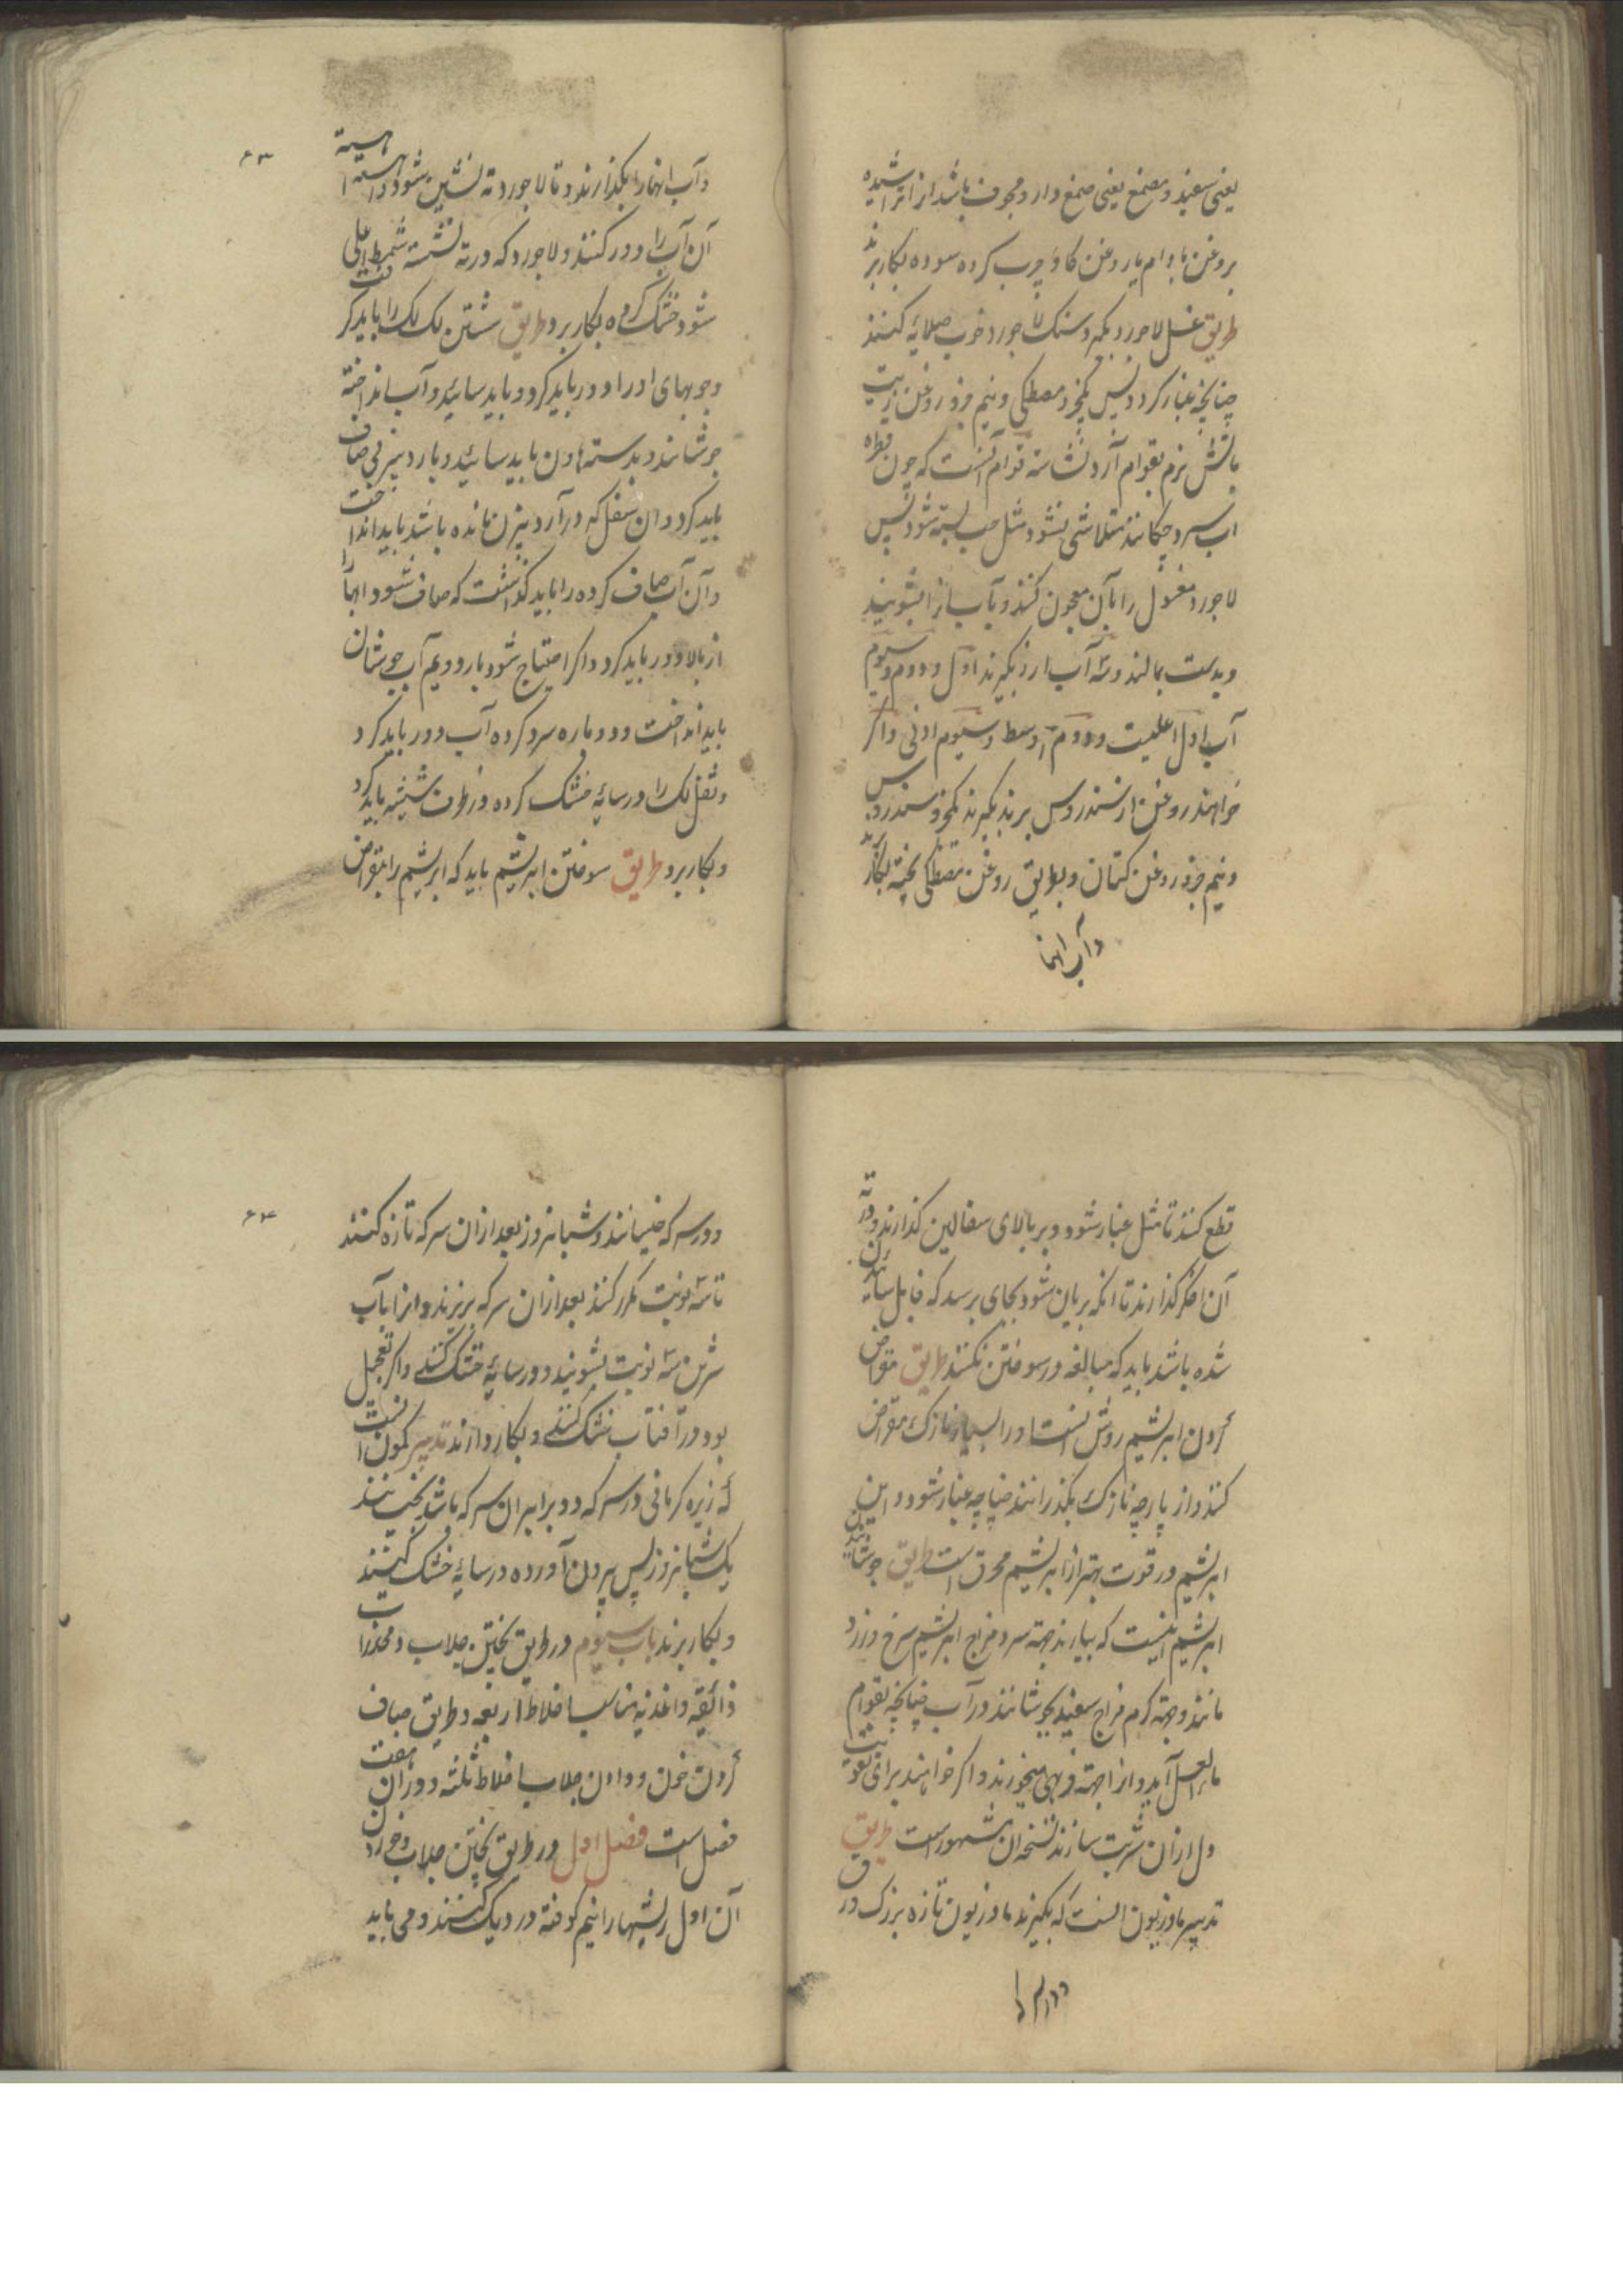 یعنی سفید و مصمغ یعنی صمغ دار و مجوف باشد از انرا تراشیده
بروغن بادام یا روغن کاو چرب کرده سوده بکار برند
طریق غسل لاجورد بکیرد سنک لاجورد خوب صلایه کنند
چنانچه غبار کردد پس یکجزو مصطکی و نیم جزو روغن زیت
باتش نرم بقوام آرد نشانه قوام آنست که چون قطره
اب سرد چکانند متلاشی نشود مثل حب بسته شود پس
لاجورد مغسول را بآن معجون کنند و بآب انرا بشویند
و بدست بمالند و سه آب ازو بکیرند اول و دوم و سیوم
آب اول اعلیست و دوم اوسط و سیوم ادنی و اکر
خواهند روغن از سندروس برند بکیرند یکجزو سندروس
و نیم جزو روغن کتان و بطریق روغن مصطکی پخته بکار برند
و آب انها
۶۳
و آب انها را بکذارند و تا لاجورد ته نشین شود و آهسته آهسته
آن آب را دور کنند و لاجورد که در ته نشسته
شود خشک کرده بکار برد طریق شستن لک لک را باید کرفت
و چوبهای او را دور باید کرد و باید سائید و آب انداخته
جوشانند و بدسته هاون باید سائید و بارد بیزنی صاف
باید کرد و ان ثفل که در آرد بیزن مانده باشد باید انداخت
و آن آب صاف کرده را باید کذاشت که صاف شود ابها را
از بالا دور باید کرد و اکر احتیاج شود بار دویم آب جوشان
باید انداخت و دوباره سرد کرده آب دور باید کرد
و ثفل لک را در سایه خشک کرده در ظرف شیشه باید کرد
و بکار برد طریق سوختن ابریشم باید که ابریشم را بمقراض
قطع کنند تا مثل غبار شود و بر بالای سفالین کذارند و در ته
آن اخکر کذارند تا انکه بریان شود بجای برسد که قابل سائیدن
شده باشد باید که مبالغه در سوختن نکنند طریق مقراض
کردن ابریشم روش انست او را بسیار نازک مقراض
کنند و از پارچه نازک بکذرانند چنانچه غبار شود و این
ابریشم در قوت بهتر از ابریشم محرق است طریق جوشانیدن
ابریشم اینست که بیارند جهته سرد مزاج ابریشم سرخ و زرد
مانند و جهته کرم مزاج سفید بجوشانند در آب چنانچه بقوام
ماء العسل آید و انرا جهته فربهی میخورند و اکر خواهند برای تقویت
دل ازان شربت سازند نسخه ان مشهور است طریق
تدبیر مازریون انست که بکیرند مازریون تازه بزرک ورق
و در سرکه
۶۴
و در سرکه خیسانند و شبانروز بعد ازان سرکه تازه کنند
تا سه نوبت مکرر کنند بعد ازان سرکه بریزند و انرا بآب
شیرین سه نوبت بشویند و در سایه خشک کنند و اکر تعجیل
بود در آفتاب خشک کنند و بکار دارند تدبیر کمون انست
که زیره کرمانی در سرکه دو برابر ان سرکه باشد بخیسانند
یک شبانروز پس بیرون آورده در سایه خشک کنند
و بکار برند باب سیوم در طریق پختن جلاب و محذرات
ذائقه و اغذیه مناسب اخلاط اربعه و طریق صاف
کردن خون و دادن جلاب اخلاط ثلثه و دران هفت
فصل است فصل اول در طریق پختن جلاب و خوردن
آن اول ریشها را نیم کوفته در دیک کنند و می باید